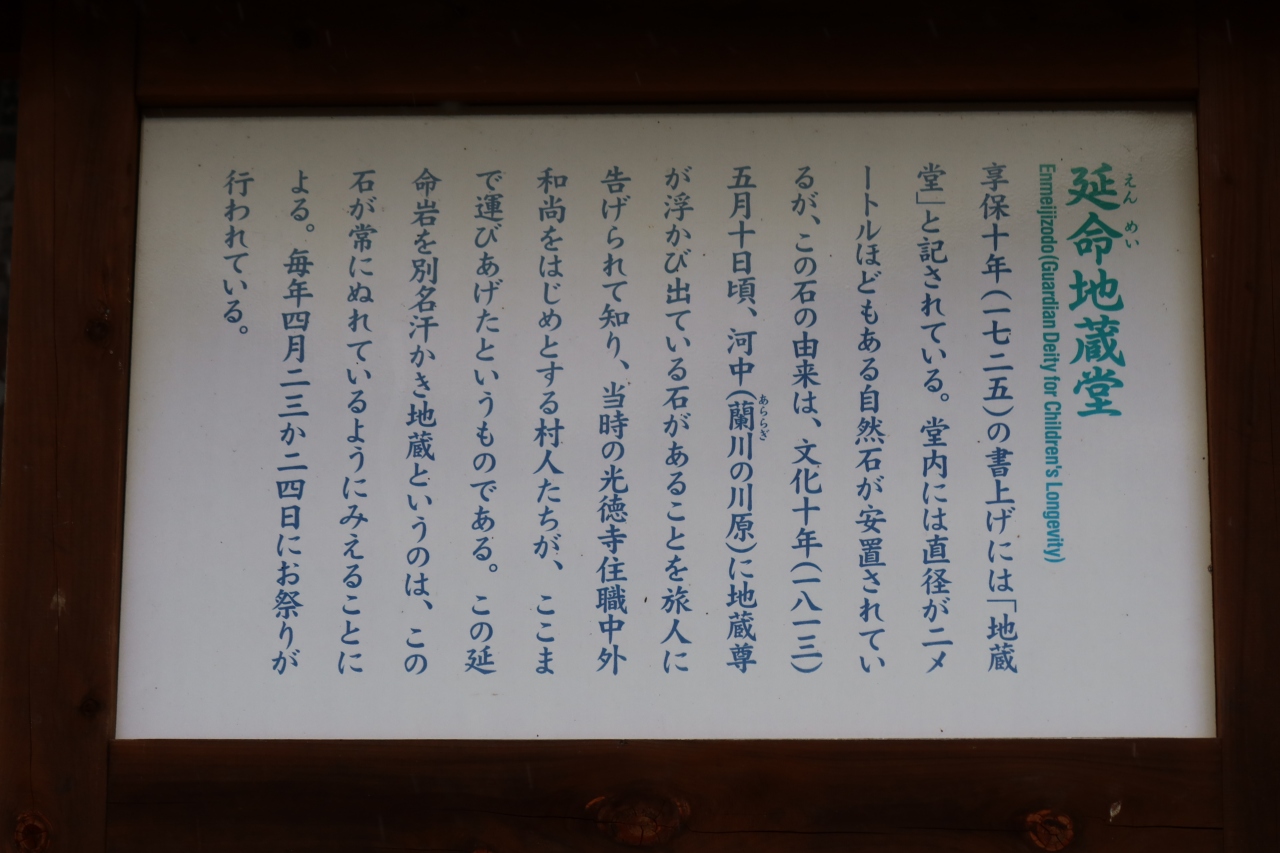 延命地蔵堂
えん めい
Enmeijizodo(Guardian Deity for Children's Longevity)
享保十年(一七二五)の書上げには「地蔵
堂」と記されている。堂内には直径が二メ
ートルほどもある自然石が安置されてい
るが、この石の由来は、文化十年(一八一三)
五月十日頃、河中(蘭川の川原)に地蔵尊
あららぎ
が浮かび出ている石があることを旅人に
告げられて知り、当時の光徳寺住職中外
和尚をはじめとする村人たちが、ここま
で運びあげたというものである。この延
命岩を別名汗かき地蔵というのは、この
石が常にぬれているようにみえることに
よる。毎年四月二三か二四日にお祭りが
行われている。